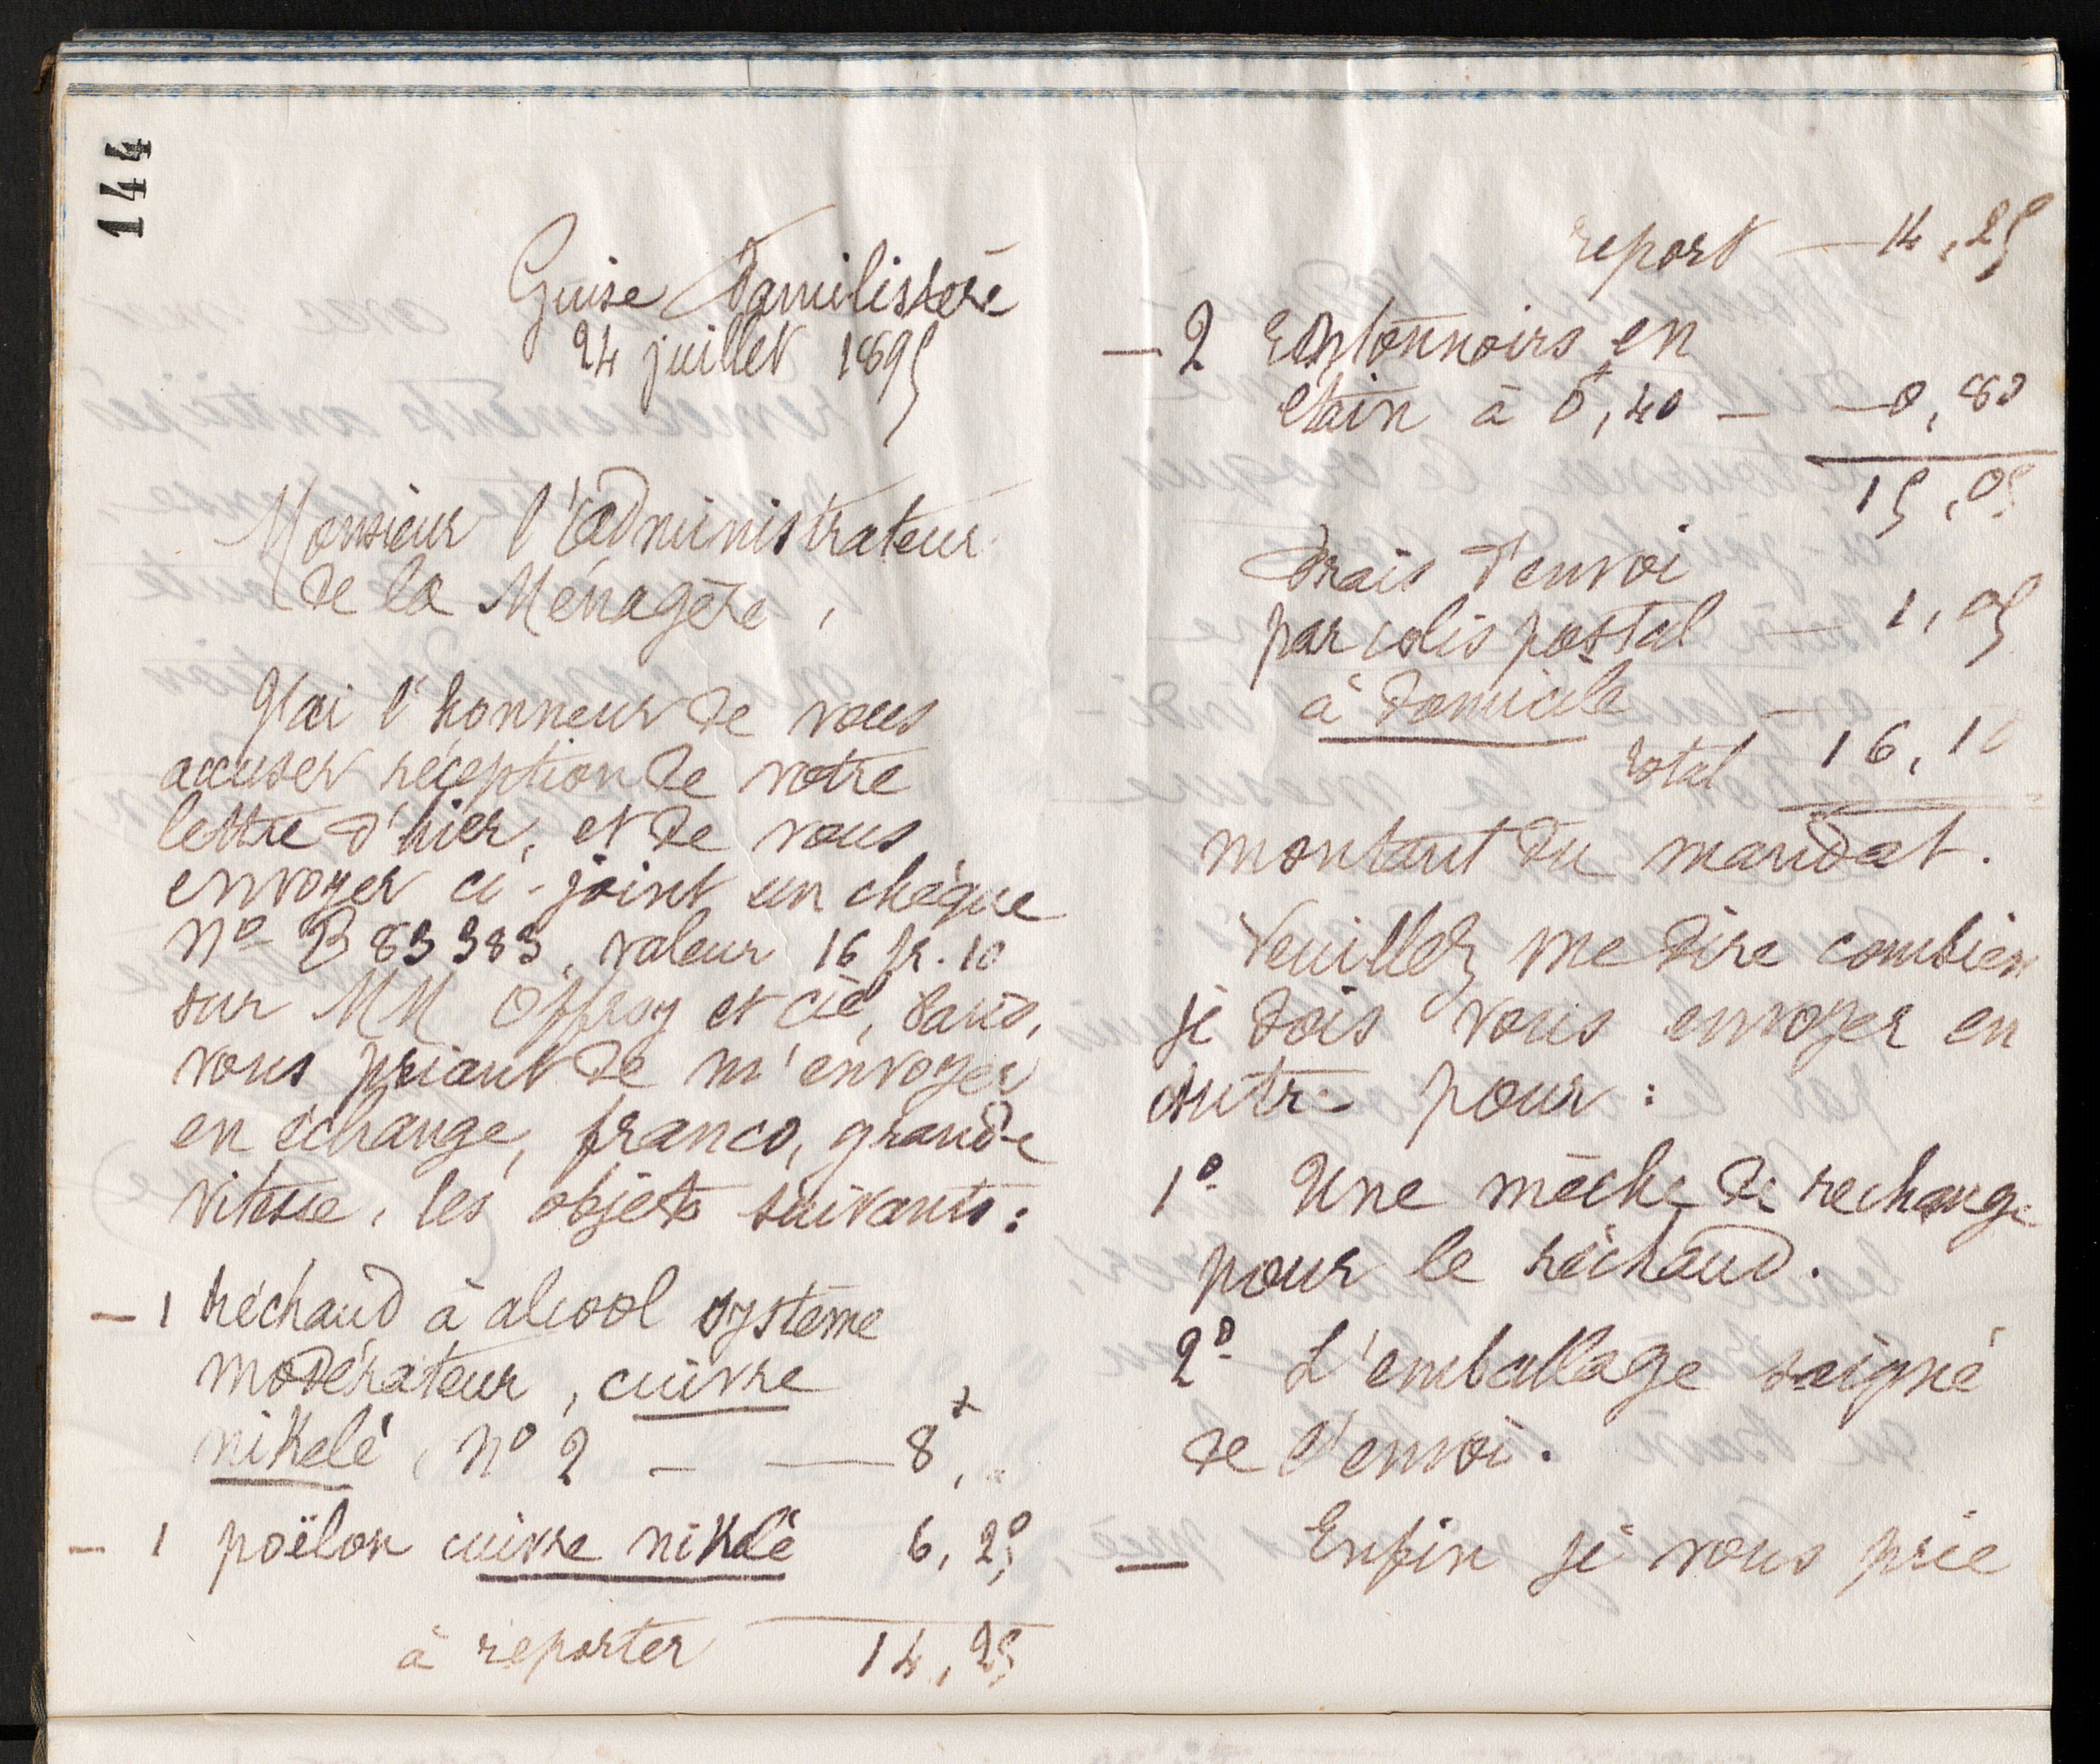 144
Guise Familistère
24 juillet 1895
Monsieur l'administrateur
de la Ménagère,
J'ai l'honneur de vous
accuser réception de votre
lettre d'hier, et de vous
envoyer ci-joint un chèque
No B 83383, valeur 16 fr. 10
sur MM Offroy et Cie, Paris,
vous priant de m'envoyer
en échange, franco, grande
vitesse, les objets suivants:
— 1 réchaud à alcool système
modérateur, cuivre
nikelé, No 2 — — 8f, "
— 1 poëlon cuivre nikelé 6, 25
à reporter 14, 25
report — 14, 25
— 2 Entonnoirs en
étain à 0f, 40 — — 0, 80
15, 05
Frais d'envoi
par colis postal — 1, 05
à domicile
total 16, 10
montant du mandat.
Veuillez me dire combien
je dois vous envoyer en
outre pour :
1o Une mèche de rechange
pour le réchaud.
2o L'emballage soigné
de l'envoi.
— Enfin je vous prie